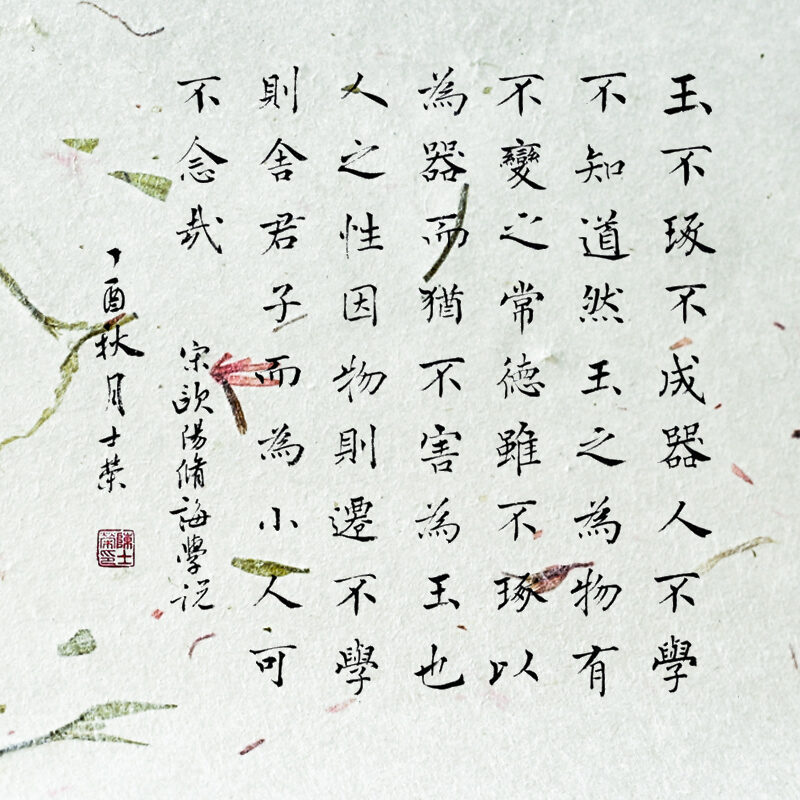 玉不琢不成器人不學
不知道然玉之為物有
不變之常德雖不琢以
為器而猶不害為玉也
人之性因物則遷不學
則舍君子而為小人可
不念哉
宋歐陽脩誨學说
丁酉秋月士榮
陳士榮印